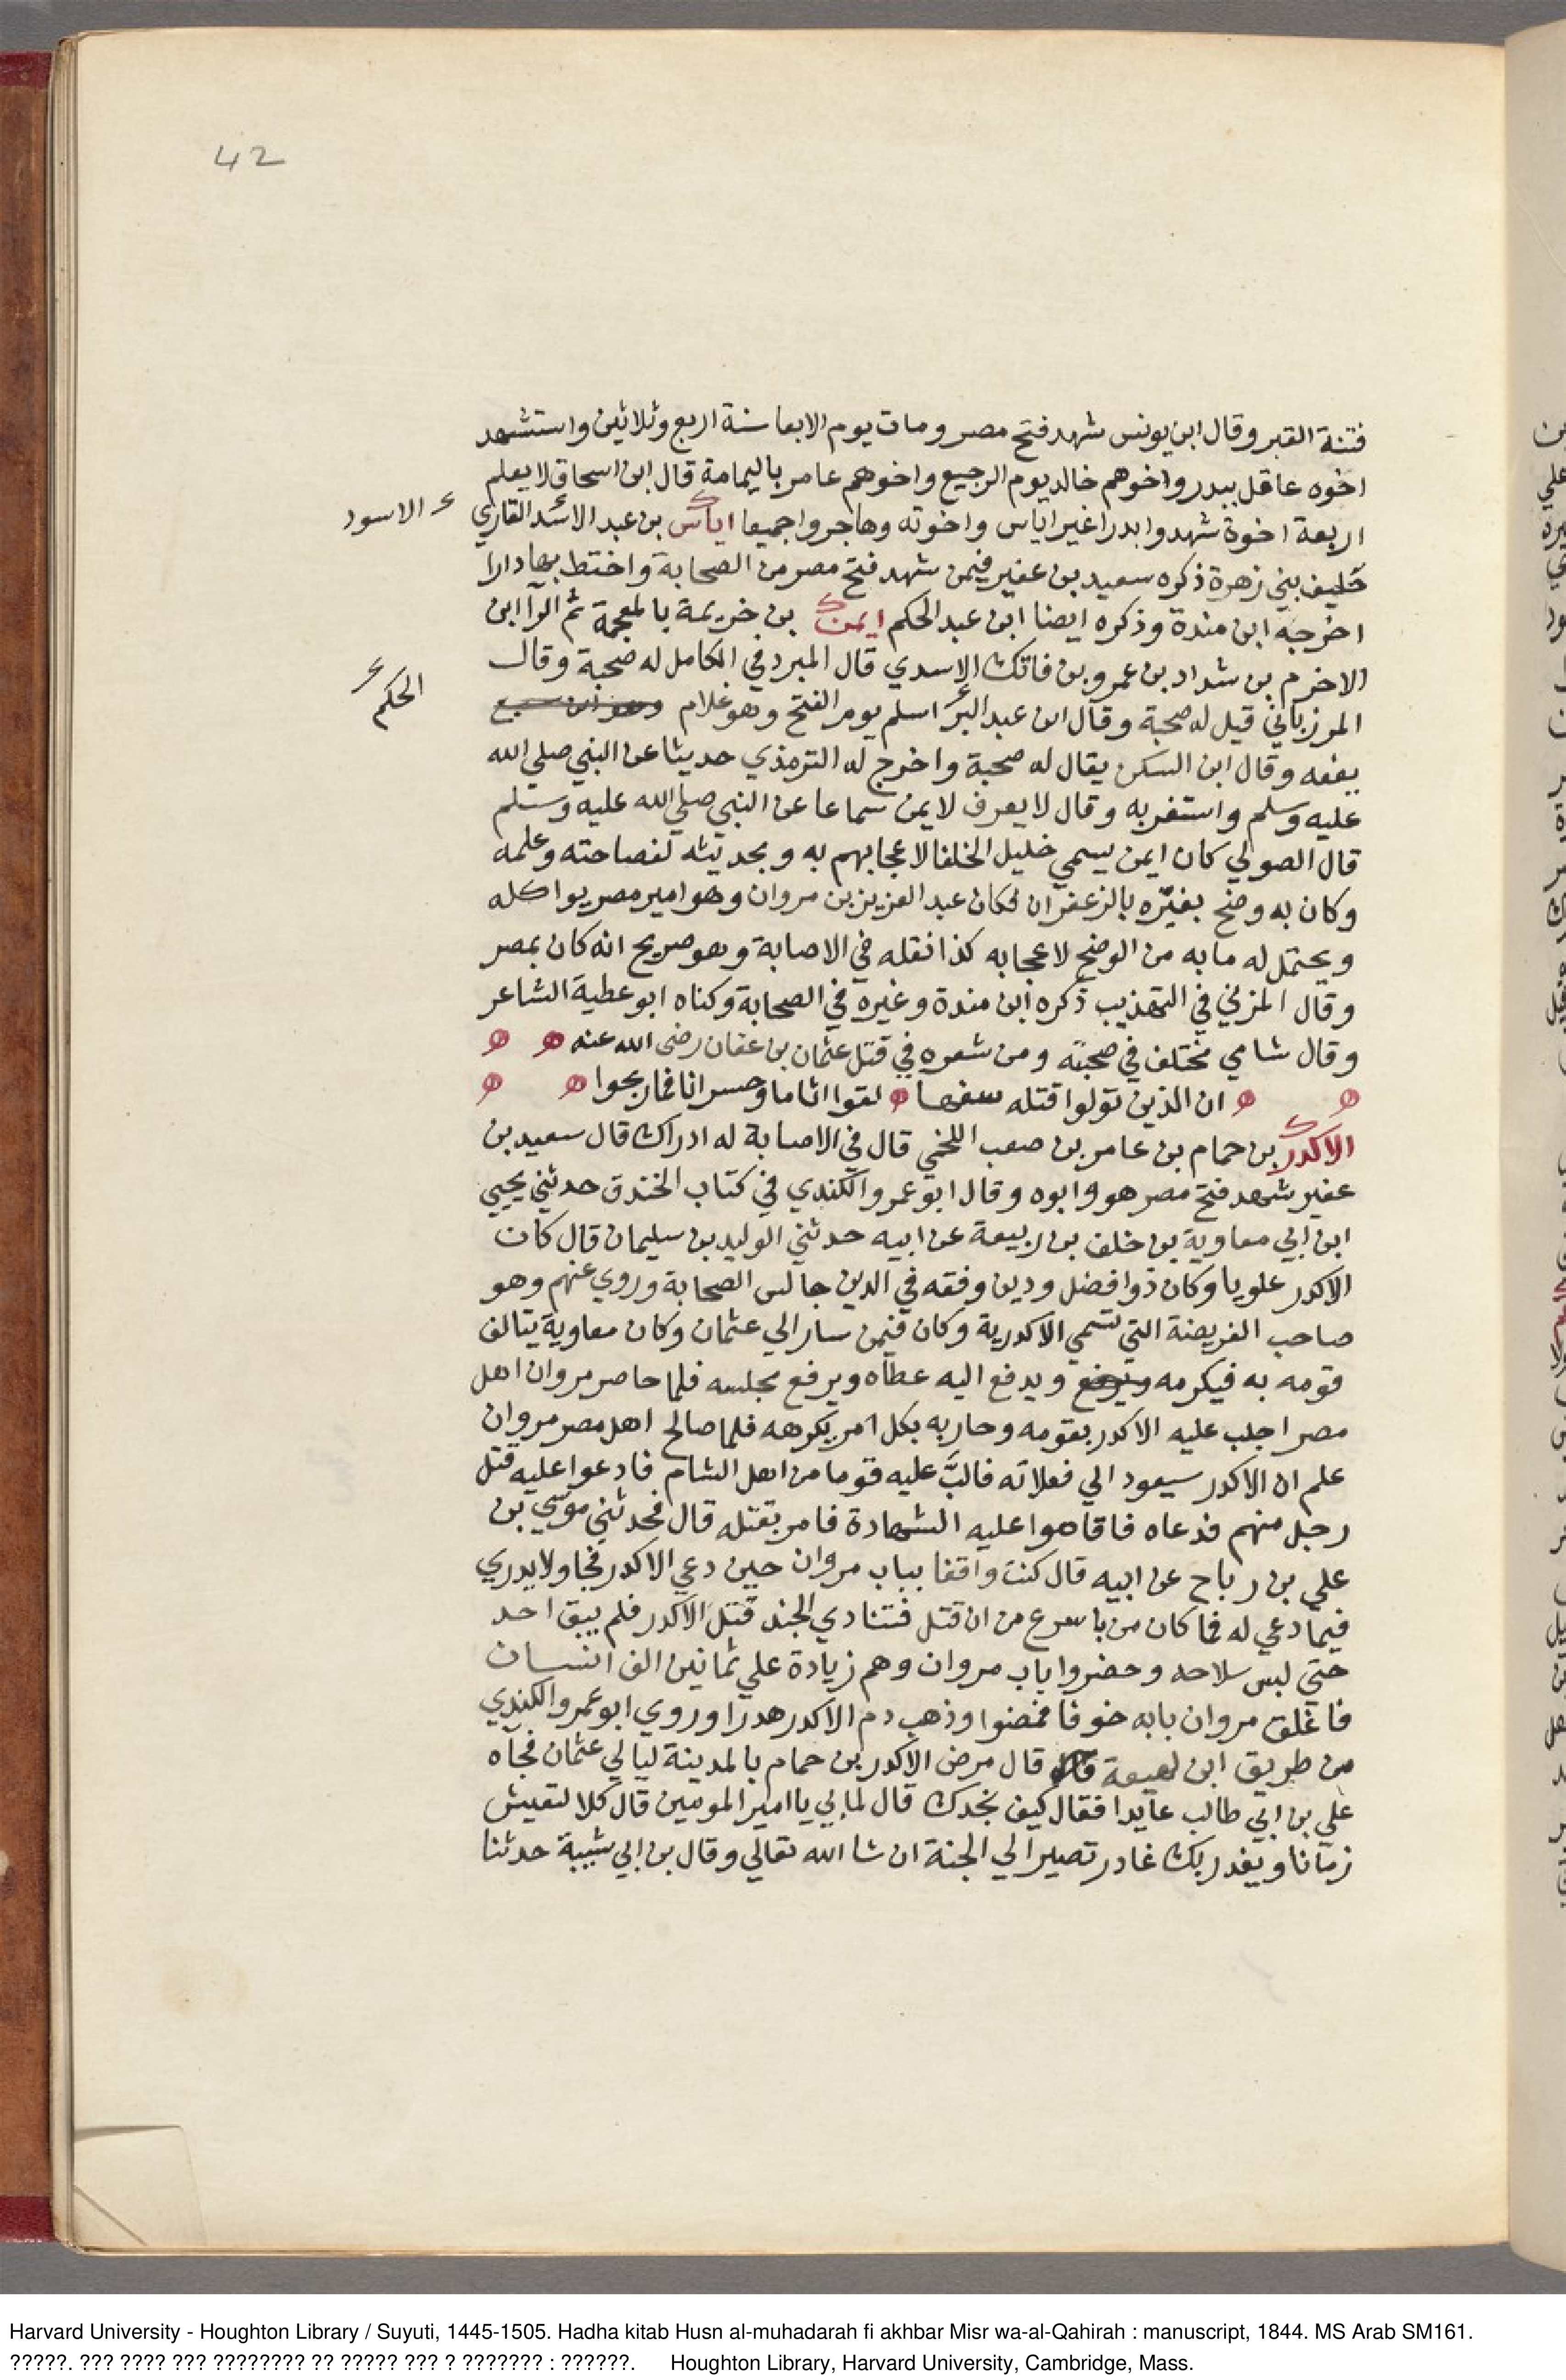 42
فتنة القبر وقال ابن يونس شهد فتح مصر ومات يوم الابعا سنة اربع وثلاثين واستشهد
اخوه عاقل ببدر واخوهم خالد يوم الرجيع واخوهم عامر باليمامة قال ابن اسحاق لا يعلم
اربعة اخوة شهدوا بدرا غير اياس واخوته وهاجروا جميعا اياس بن عبد الاسد القاري
الاسود
حليف بني زهرة ذكره سعيد بن عفير فيمن شهد فتح مصر من الصحابة واختط بها دارا
اخرجه ابن مندة وذكره ايضا ابن عبد الحكم ايمن بن خريمة بالمعجمة ثم الرآ ابن
الاخرم بن شداد بن عمرو بن فاتك الاسدي قال المبرد في الكامل له صحبة وقال
الحكم
المرزباني قيل له صحبة وقال ابن عبد البر اسلم يوم الفتح وهو غلام وهو ابن سبع
يفعه وقال ابن السكن يقال له صحبة واخرج له الترمذي حديثا عن النبي صلي الله
عليه وسلم واستغربه وقال لا يعرف لايمن سماعا عن النبي صلي الله عليه وسلم
قال الصولي كان ايمن يسمي خليل الخلفا لاعجابهم به وبحديثه لفصاحته وعلمه
وكان به وضح يغيّره بالزعفران فكان عبد العزيز بن مروان وهو امير مصر يواكله
ويحتمل له ما به من الوضح لاعجابه كذا نقله في الاصابة وهو صريح انه كان بمصر
وقال المزني في التهذيب ذكره ابن مندة وغيره في الصحابة وكناه ابو عطية الشاعر
وقال شامي مختلف في صحبته ومن شعره في قتل عثمان بن عفان رضي الله عنه
ان الذين تولوا قتله سفها لقوا اثاما وخسرانا فما ربحوا
الاكدر بن حمام بن عامر بن صعب اللخمي قال في الاصابة له ادراك قال سعيد بن
عفير شهد فتح مصر هو وابوه وقال ابو عمرو الكندي في كتاب الخندق حدثني يحيي
ابن ابي معاوية بن خلف بن ربيعة عن ابيه حدثني الوليد بن سليمان قال كان
الاكدر علويا وكان ذوا فضل ودين وفقه في الدين جالس الصحابة وروي عنهم وهو
صاحب الفريضة التي تسمي الاكدرية وكان فيمن سار الي عثمان وكان معاوية يتالف
قومه به فيكرمه ويرفع ويدفع اليه عطاه ويرفع مجلسه فلما حاصر مروان اهل
مصر اجلب عليه الاكدر بقومه وحاربه بكل امر يكرهه فلما صالح اهل مصر مروان
علم ان الاكدر سيعود الي فعلاته فالبَّ عليه قوما من اهل الشام فادعوا عليه قتل
رجل منهم فدعاه فاقاموا عليه الشهادة فامر بقتله قال فحدثني موسي بن
علي بن رباح عن ابيه قال كنت واقفا بباب مروان حين دعي الاكدر فجا ولا يدري
فيما دعي له فما كان من باسرع من ان قتل فتنادي الجند قتل الاكدر فلم يبق احد
حتي لبس سلاحه وحضروا باب مروان وهم زيادة علي ثمانين الف انسان
فاغلق مروان بابه خوفا فمضوا وذهب دم الاكدر هدرا وروي ابو عمر والكندي
من طريق ابن لهيعة قال مرض الاكدر بن حمام بالمدينة ليالي عثمان فجآه
علي بن ابي طالب عايدا فقال كيف نجدك قال لما بي يا امير المومنين قال كلا لتعيش
زمانا ويغدر بك غادر تصير الي الجنة ان شا الله تعالي وقال بن ابي شيبة حدثنا
Harvard University - Houghton Library / Suyuti, 1445-1505. Hadha kitab Husn al-muhadarah fi akhbar Misr wa-al-Qahirah : manuscript, 1844. MS Arab SM161.
?????. ??? ???? ??? ???????? ?? ????? ??? ? ??????? : ??????. Houghton Library, Harvard University, Cambridge, Mass.